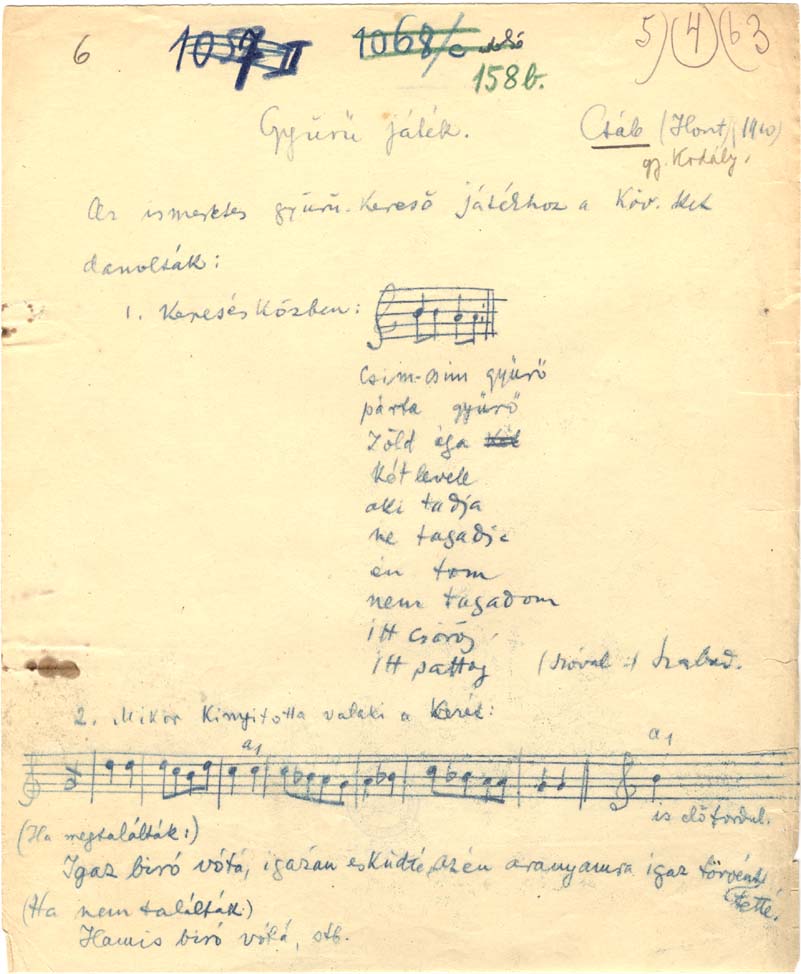 6 1057 II 1068/c 158b. 5) 4) 63
Gyűrű játék. Csáb (Hont) (1910)
gy. Kodály.
Az ismeretes gyűrű-kereső játékhoz a köv. ket
danolták:
1. Keresés közben:
Csim-csim gyűrő
párta gyűrő
Zöld ága
két levele
aki tudja
ne tagadja
én tom
nem tagadom
itt csörög,
itt pattog (szóval:) Szabad.
2. Mikor kinyitotta valaki a kezét:
a1 a1
is előfordul.
(Ha megtalálták:)
Igaz biró vótá, igazan esküdté, azén aranyamra igaz törvént
tetté.
(Ha nem találták)
Hamis biró vótá, stb.